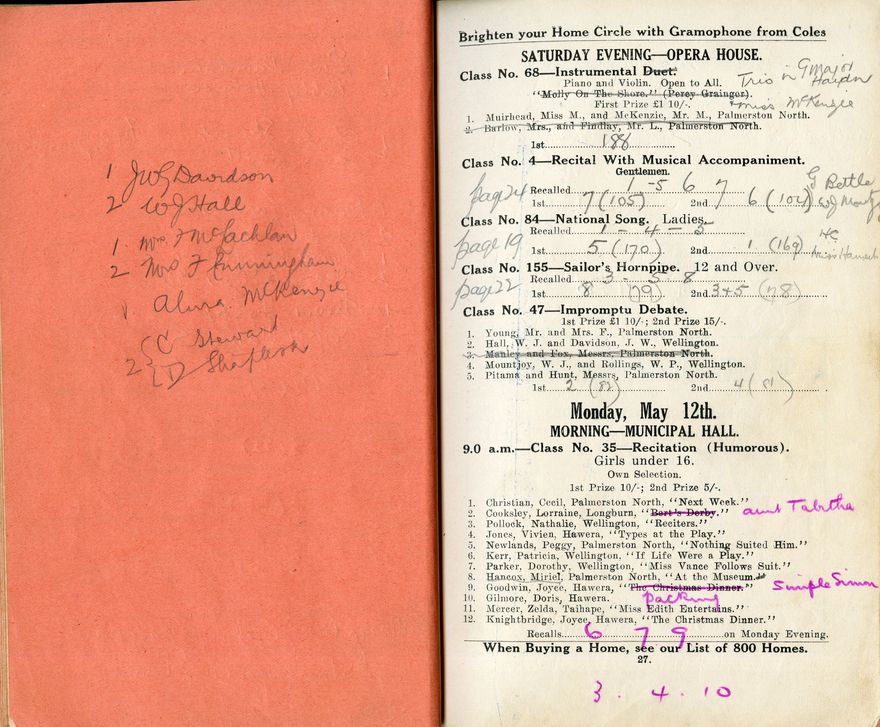 1 JWG Davidson
2 WJ Hall
1. Mrs F McLachlan
2 Mrs F Cunningham
Alma McKenzie
SC Steward
2 LD
Brighten your Home Circle with Gramophone from Coles
SATURDAY EVENING—OPERA HOUSE.
Class No. 68—Instrumental Duet. Trio in G Major Haydn
Piano and Violin. Open to All.
"Molly On The Shore." (Percy Grainger).
First Prize £1 10/-. Miss McKenzie
1. Muirhead, Miss M., and McKenzie, Mr. M., Palmerston North.
2. Barlow, Mrs., and Findlay, Mr. L., Palmerston North.
1st 188
Class No. 4—Recital With Musical Accompaniment.
Gentlemen.
page 24 Recalled 1 - 5 6 7 G Bettle
1st 7 (105) 2nd 6 (104) WJ
Class No. 84—National Song. Ladies.
Recalled 1 - 4 - 5 HC
page 19 1st 5 (170) 2nd 1 (169) Miss
Class No. 155—Sailor's Hornpipe. 12 and Over.
Recalled 3 - 5 8
page 22 1st 8 (79) 2nd 3+5 (78)
Class No. 47—Impromptu Debate.
1st Prize £1 10/-; 2nd Prize 15/-.
1. Young, Mr. and Mrs. F., Palmerston North.
2. Hall, W. J. and Davidson, J. W., Wellington.
3. Manley and Fox, Messrs, Palmerston North.
4. Mountjoy, W. J., and Rollings, W. P., Wellington.
5. Pitama and Hunt, Messrs, Palmerston North.
1st 2 (82) 2nd 4 (81)
Monday, May 12th.
MORNING—MUNICIPAL HALL.
9.0 a.m.—Class No. 35—Recitation (Humorous).
Girls under 16.
Own Selection.
1st Prize 10/-; 2nd Prize 5/-.
1. Christian, Cecil, Palmerston North, "Next Week."
2. Cooksley, Lorraine, Longburn, "Bert's Derby." aunt Tabitha
3. Pollock, Nathalie, Wellington, "Reciters."
4. Jones, Vivien, Hawera, "Types at the Play."
5. Newlands, Peggy, Palmerston North, "Nothing Suited Him."
6. Kerr, Patricia, Wellington, "If Life Were a Play."
7. Parker, Dorothy, Wellington, "Miss Vance Follows Suit."
8. Hancox, Miriel, Palmerston North, "At the Museum."
9. Goodwin, Joyce, Hawera, "The Christmas Dinner." Simple Simon
10. Gilmore, Doris, Hawera. Packing
11. Mercer, Zelda, Taihape, "Miss Edith Entertains."
12. Knightbridge, Joyce, Hawera, "The Christmas Dinner."
Recalls 6 7 9 on Monday Evening.
When Buying a Home, see our List of 800 Homes.
27.
3 . 4 . 10